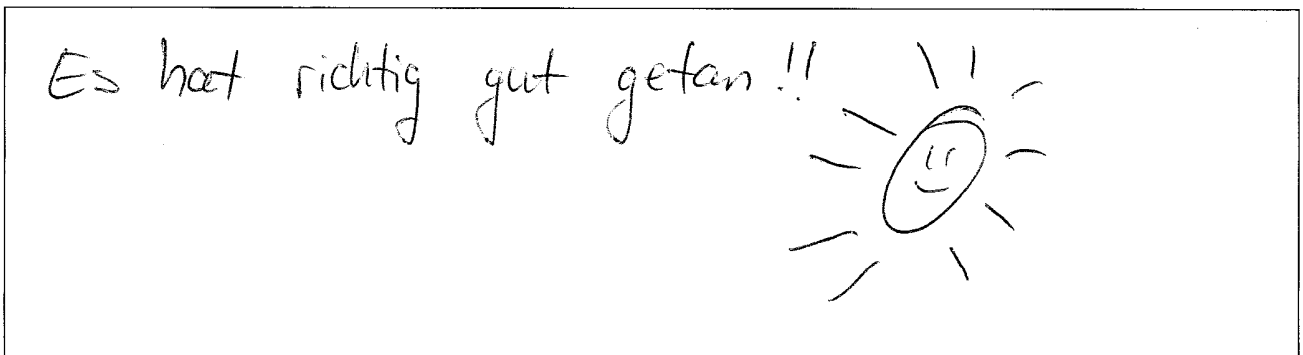 Es hat richtig gut getan!!